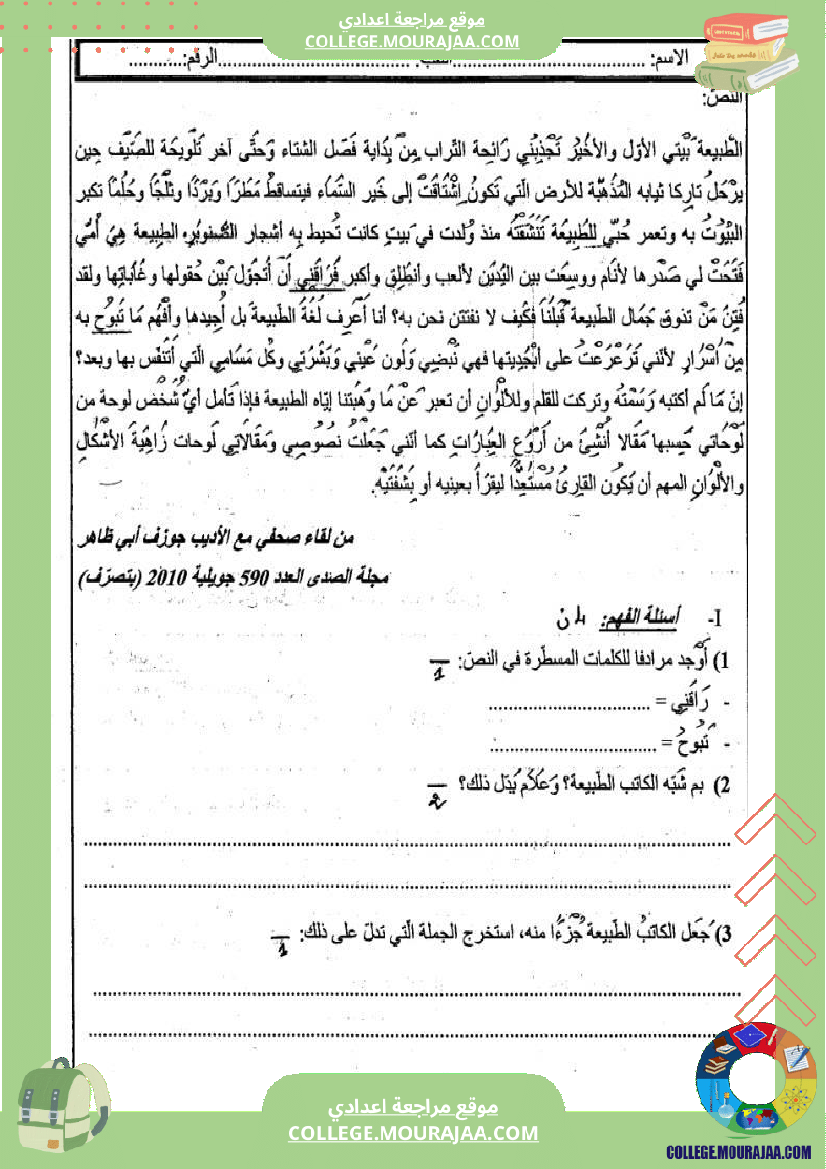 موقع مراجعة اعدادي
COLLEGE.MOURAJAA.COM
الاسم: ........................................ .......................................الرقم:...........
النص:
الطّبيعة بَيْتي الأوّل والأخيْرُ تَجْذِبُني رَائحة التّراب مِنْ بِدَاية فَصْل الشتاء وَحَتَّى آخر تَلْوِيحَة للصَّيْف حِين
يرْحَلُ تاركا ثيابه المُذهّبة للأرض الّتي تَكونُ اِشْتَاقَتْ إلى خَير السَّمَاء فيتساقطُ مَطَرًا وَبَرَدًا وثَلْجًا وحُلْمًا تكبر
البُيُوتُ به وتعمر حُبّي للطّبيعَة تَنَشَّقْتُهُ منذ وُلدت في بَيتٍ كانت تُحيط بِه أشجار الصّنوبر. الطبيعة هِيَ أُمّي
فَتَحَتْ لي صَدْرها لأنَام ووسِعَت بين اليَدَيْن لألعب وأنطَلِق وأكبر فَرَاقَنِي أنْ أتجَوّل بَيْن حُقولها وغَاباتِها ولقد
فُتِنُ مَنْ تذوق جَمال الطّبيعة قَبْلَنَا فكَيف لا نفتتن نحن به؟ أنا أعْرف لُغَةَ الطّبيعَة بل أجِيدها وأفْهم مَا تَبُوح به
مِنْ أسْرَارٍ لأنّني تَرَعْرَعْتُ على أبْجَديتها فهي نَبْضِي وَلون عَيْني وَبَشْرَتي وكُل مَسَامي الّتي أتَنَفّس بها وبعد؟
إنّ مَا لم أكتبه رَسَمْتُه وتركت للقلم وللألْوَانِ أن تعبر عَنْ مَا وَهَبَتْنا إيّاه الطبيعة فإذا تَأمل أيُّ شَخْص لوحة من
لَوْحَاتي حَسِبها مَقَالا أُنْشِئَ من أرْوَعِ العِبَارَاتِ كما أنّني جَعَلْتُ نصُوصِي ومَقَالاَتِي لَوحات زَاهِيَةَ الأشْكَالِ
والألْوَانِ المهم أن يَكُون القارئُ مُسْتَعِدًّا ليَقرَأ بعينيه أو بِشَفَتَيْه.
من لقاء صحفي مع الأديب جوزف أبي ظاهر
مجلة الصدى العدد 590 جويلية 2010 (بتصرّف)
I- أسئلة الفهم: 4 ن
1) أوْجد مرادفا للكلمات المسطّرة في النصّ: 1
- رَاقَنِي = .................................
- تَبُوحُ = .................................
2) بم شَبّه الكاتب الطّبيعة؟ وَعَلاَم يَدّل ذلك؟ 2
3) جَعَل الكاتبُ الطّبيعة جُزْءًا منه، استخرج الجملة الّتي تدلّ على ذلك: 1
موقع مراجعة اعدادي
COLLEGE.MOURAJAA.COM
COLLEGE.MOURAJAA.COM